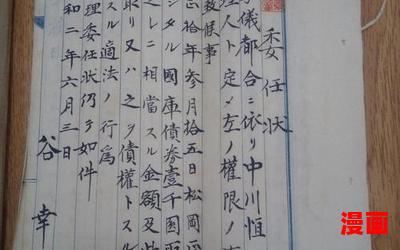 委任状
儀都合ニ依リ中川恒
理人ト定メ左ノ權限ノ
致候事
正拾年参月拾五日松岡
シタル國庫債券壹千圓
之レニ相當スル金額及
取リ又ハ之ヲ債權トスル
スル適法ノ行爲
理委任状仍テ如件
和二年六月三日
谷幸
漫画